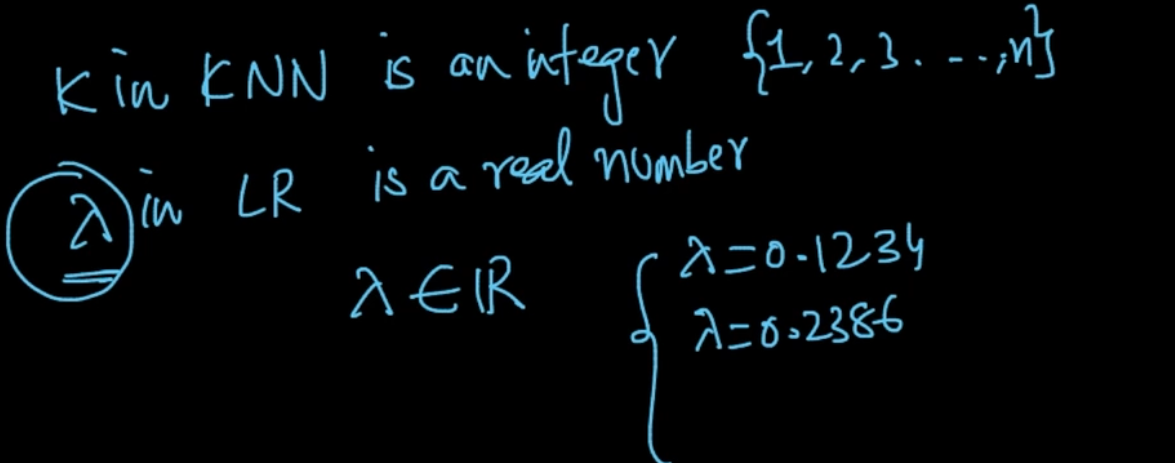 K in KNN is an integer {1, 2, 3. . . -, n}
λ in LR is a real number
λ ∈ ℝ
λ=0.1234
λ=0.2386